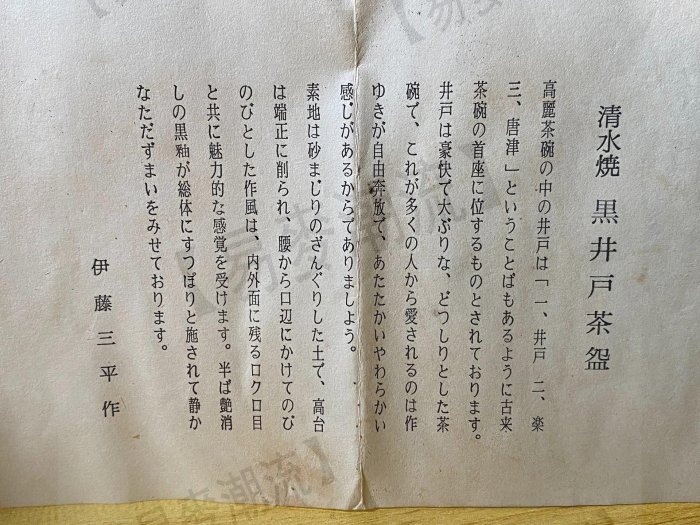 清水焼 黒井戸茶盌
高麗茶碗の中の井戸は「一、井戸 二、楽
三、唐津」ということばもあるように古来
茶碗の首座に位するものとされております。
井戸は豪快で大ぶりな、どつしりとした茶
碗で、これが多くの人から愛されるのは作
ゆきが自由奔放で、あたたかいやわらかい
感じがあるからでありましよう。
素地は砂まじりのざんぐりした土で、高台
は端正に削られ、腰から口辺にかけてのび
のびとした作風は、内外面に残るロクロ目
と共に魅力的な感覚を受けます。半ば艶消
しの黒釉が総体にすつぽりと施されて静か
なただずまいをみせております。
伊藤三平作
【易麥潮流】